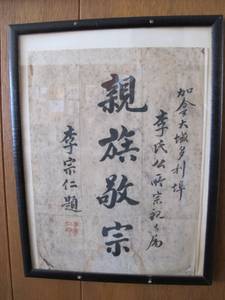 加拿大域多利埠
李氏公所宗親屬
親族敬宗
李宗仁題